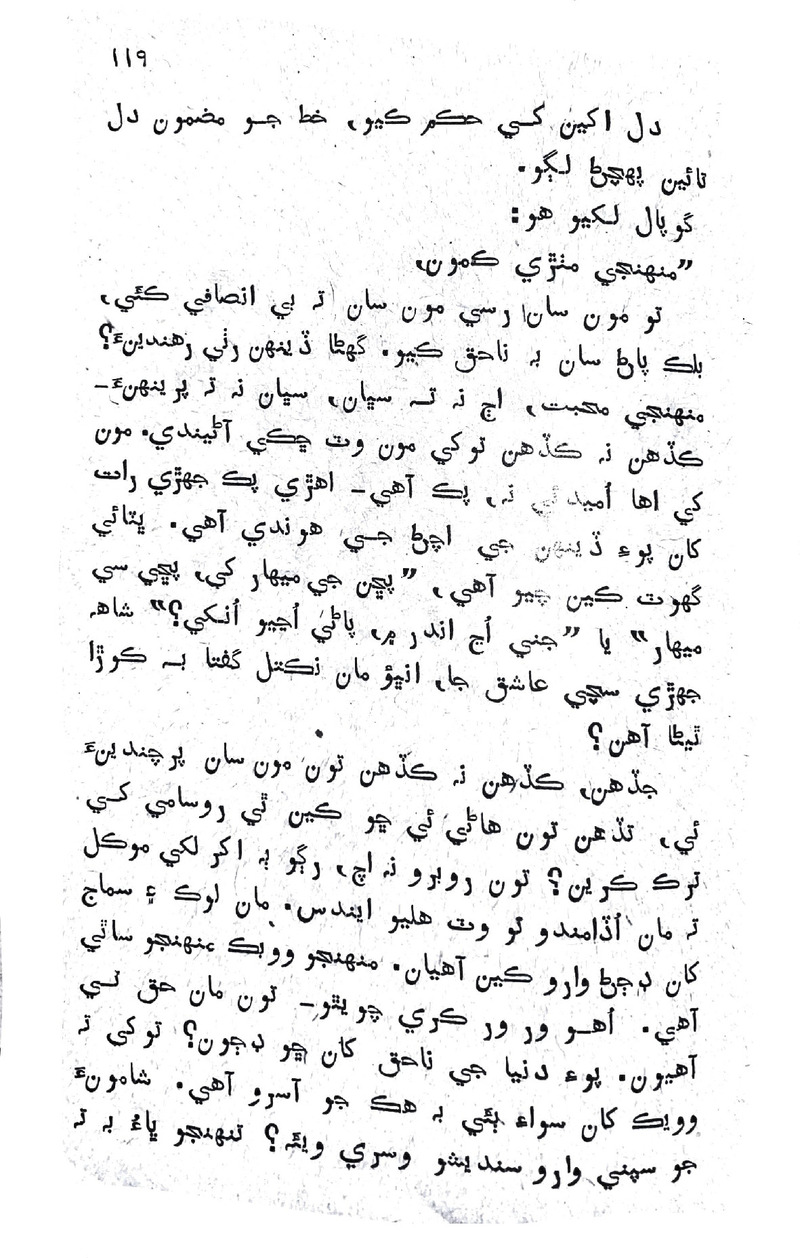 ١١٩
دل اکين کي حڪم ڪيو، خط جو مضمون دل
تائين پهچڻ لڳو.
گوپال لکيو هو:
”منهنجي مٺڙي ڪمون،
تو مون سان رسي مون سان ته بي انصافي ڪئي،
بلڪ پاڻ سان به ناحق ڪيو. گهڻا ڏينهن رٺي رهندينءَ؟
منهنجي محبت، اڄ نه ته سڀان، سڀان نه ته پرينهن-
ڪڏهن نه ڪڏهن توکي مون وٽ ڇڪي آڻيندي. مون
کي اها اُميد ئي نہ، پڪ آهي- اهڙي پڪ جهڙي رات
کان پوءِ ڏينهن جي اچڻ جي هوندي آهي. ڀٽائي
گهوٽ ڪين چيو آهي، ”پڇن جي ميهار کي، پڇي سي
ميهار“ يا ”جني اُڃ اندر ۾، پاڻي اُڃيو اُنکي؟“ شاھہ
جهڙي سچي عاشق جا، انڀؤ مان نڪتل گفتا به ڪوڙا
ٿيڻا آهن؟
جڏهن، ڪڏهن نہ ڪڏهن تون مون سان پرچندينءَ
ئي، تڏهن تون هاڻي ئي ڇو ڪين ٿي روسامي کي
ترڪ ڪرين؟ تون روبرو نہ اچ، رڳو به اکر لکي موڪل
ته مان اُڏامندو تو وٽ هليو ايندس. مان لوڪ ۽ سماج
کان ڊڄڻ وارو ڪين آهيان. منهنجو وويڪ منهنجو ساٿي
آهي. اُهو ور ور ڪري چويٿو- تون مان حق تي
آهيون. پوءِ دنيا جي ناحق کان ڇو ڊڄون؟ توکي ته
وويڪ کان سواءِ ٻئي به هڪ جو آسرو آهي. شامونءَ
جو سپني وارو سنديشو وسري ويئہ؟ تنهنجو ڀاءُ به ته